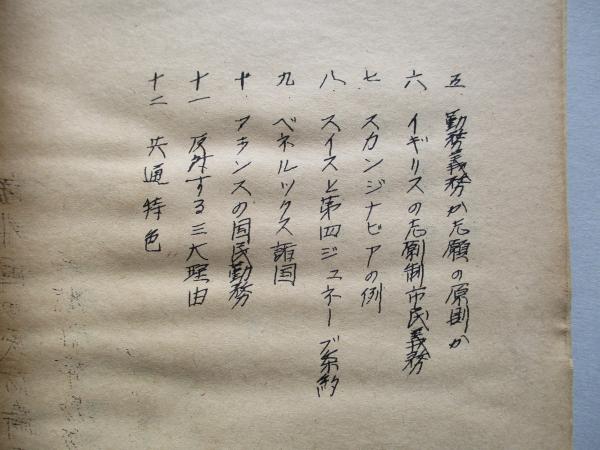 五 勤務義務か志願の原則か
六 イギリスの志願制市民義務
七 スカンジナビアの例
八 スイスと第四ジュネーブ条約
九 ベネルックス諸国
十 フランスの国民勤務
十一 反対する三大理由
十二 共通特色